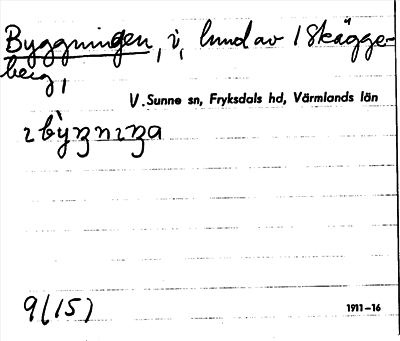 Byggningen, i, lund av 1 Skägge-
berg,
V. Sunne sn, Fryksdals hd, Värmlands län
ɩ bỳʒnɩʒa
9(15)
1911–16